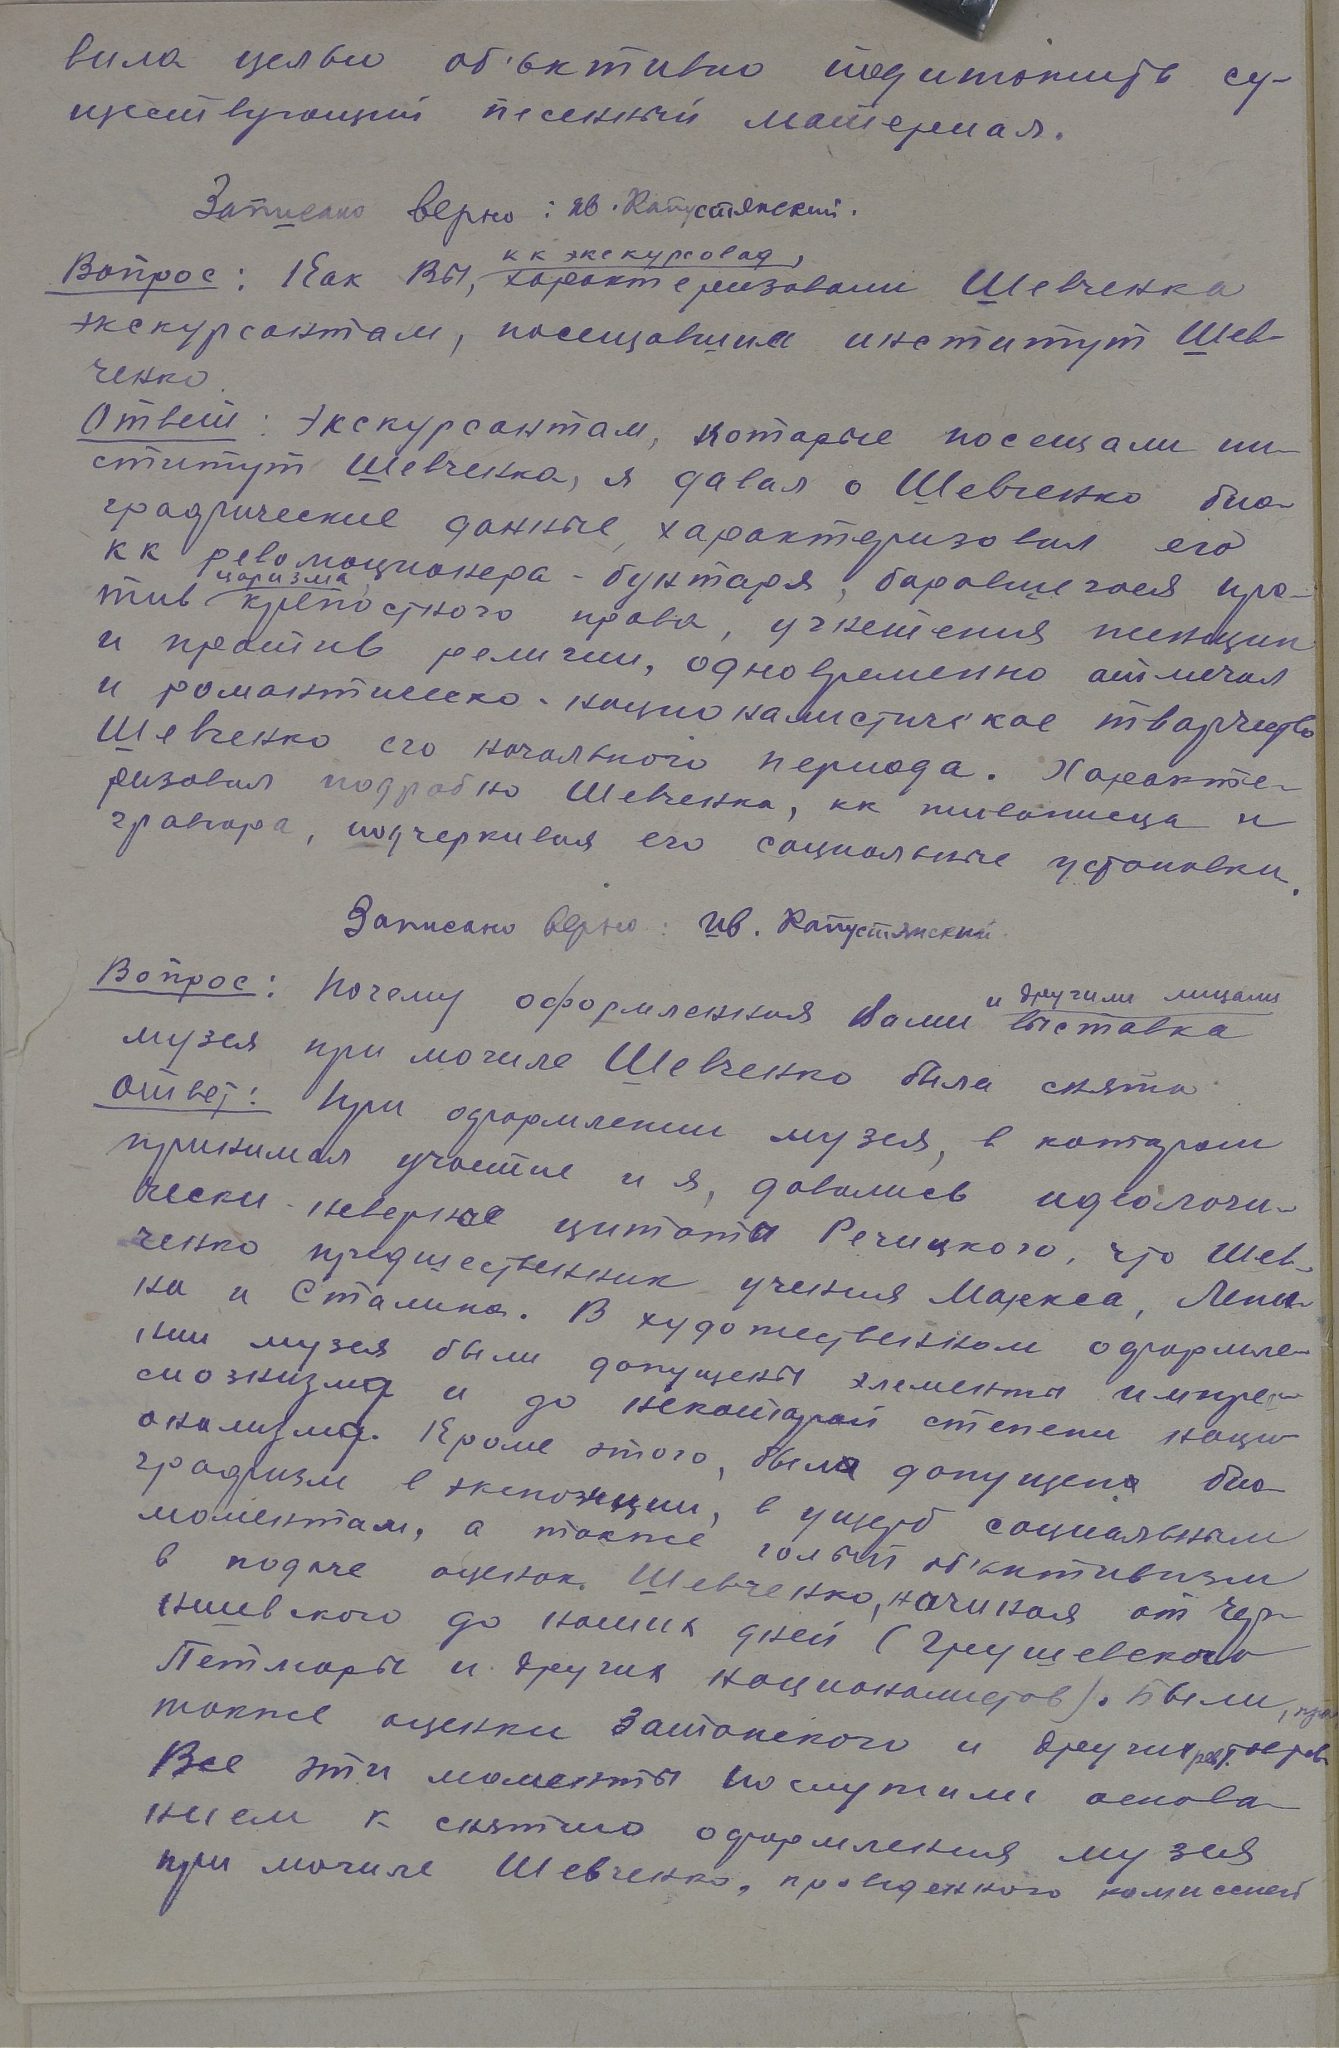 вила целью об'ективно подитожить су-
ществующий песенный материал.
Записано верно: Ив. Капустянский.
Вопрос: Как Вы, кк экскурсовод, характеризовали Шевченка
экскурсантам, посещавших институт Шев-
ченко
Ответ: Экскурсантам, которые посещали ин-
ститут Шевченка, я давал о Шевченко био-
графические данные, характеризовал его
кк революционера-бунтаря, боровшегося про-
тив царизма, крепостного права, угнетения женщин
и против религии, одновременно отмечал
и романтическо-националистическое творчество
Шевченко его начального периода. Характе-
ризовал подробно Шевченка, кк живописца и
гравюра, подчеркивая его социальные установки.
Записано верно: Ив. Капустянский.
Вопрос: Почему оформленная Вами и другими лицами выставка
музея при могиле Шевченко была снята
Ответ: При оформлении музея, в котором
принимал участие и я, давались идеологи-
чески-неверные цитаты Речицкого, что Шев-
ченко предшественник учения Маркса, Лени-
на и Сталина. В художественном оформле-
нии музея были допущены элементы импре-
сионизма и до некоторой степени наци-
онализма. Кроме этого, было допущено био-
графизм в экспозиции, в ущерб социальным
моментам, а также голый об'ективизм
в подаче оценок Шевченко, начиная от Чер-
нишевского до наших дней (Грушевского
Петлюры и других националистов). Были,
также оценки Затонского и других
Все эти моменты послужили основа-
нием к снятию оформления музея
при могиле Шевченко, проведенного комиссией